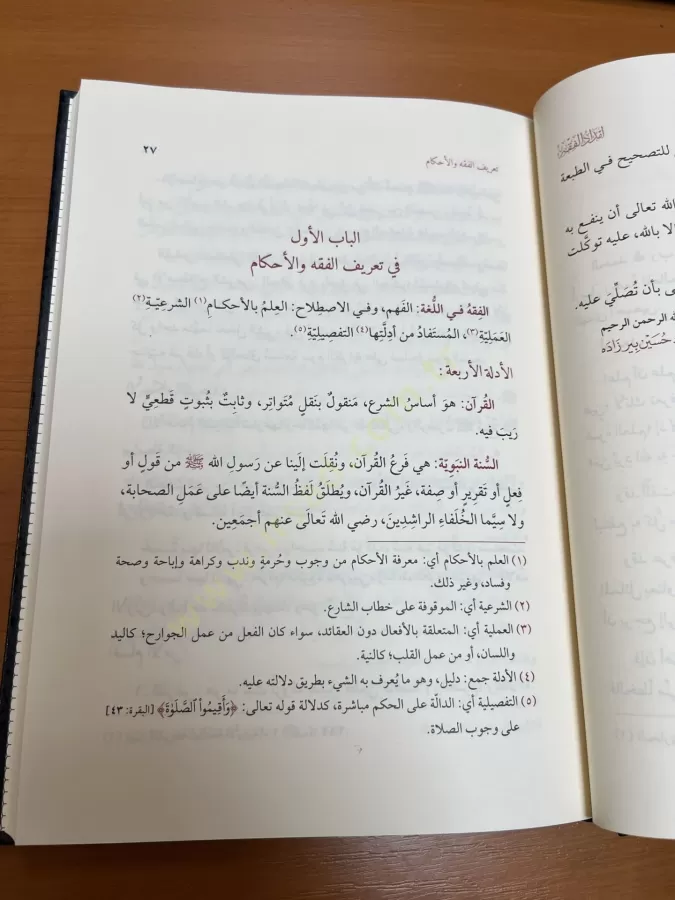 ٢٧
تعريف الفقه والأحكام
الباب الأول
في تعريف الفقه والأحكام
الفقه فـي اللُّغة: الفَهم، وفـي الاصطِلاح: العِلمُ بالأحكـامِ(١) الشرعيّـةِ(٢)
العَمَليّةِ(٣)، المُستَفادُ من أدِلَّتِها(٤) التفصِيليّةِ(٥).
الأدلة الأربعة:
القُرآن: هوَ أساسُ الشرع، مَنقولٌ بنَقلٍ مُتَواتر، وثابِتٌ بثُبوتٍ قَطعيٍّ لا
رَيبَ فيه.
السُّنة النبَويّة: هي فَرعُ القُرآن، ونُقِلَت إلَينا عن رَسولِ الله ﷺ من قَولٍ أو
فِعلٍ أو تَقريرٍ أو صِفة، غَيرُ القُرآن، ويُطلَقُ لَفظُ السُّنة أيضًا على عَمَلِ الصحابة،
ولا سِيَّما الخُلَفاءِ الراشِدِينَ، رضي الله تَعالَى عنهم أجمَعِين.
(١) العلم بالأحكام أي: معرفة الأحكام من وجوب وحُرمةٍ وندب وكراهة وإباحة وصحة
وفساد، وغير ذلك.
(٢) الشرعية أي: الموقوفة على خطاب الشارع.
(٣) العملية أي: المتعلقة بالأفعال دون العقائد، سواء كان الفعل من عمل الجوارح؛ كاليد
واللسان، أو من عمل القلب؛ كالنية.
(٤) الأدلة جمع: دليل، وهو ما يُعرف به الشيء بطريق دلالته عليه.
(٥) التفصيلية أي: الدالّة على الحكم مباشرة، كدلالة قوله تعالى: ﴿وَأَقِيمُواْ ٱلصَّلَوٰةَ﴾ [البقرة: ٤٣]
على وجوب الصلاة.
إمداد الفقيه
للتصحيح فـي الطبعة
الله تعالى أن ينفع به
إلا بالله، عليه توكَّلت
ى بأن تُصَلِّيَ عليه.
الله الرحمن الرحيم
حُسَيْن بِير زَادَه